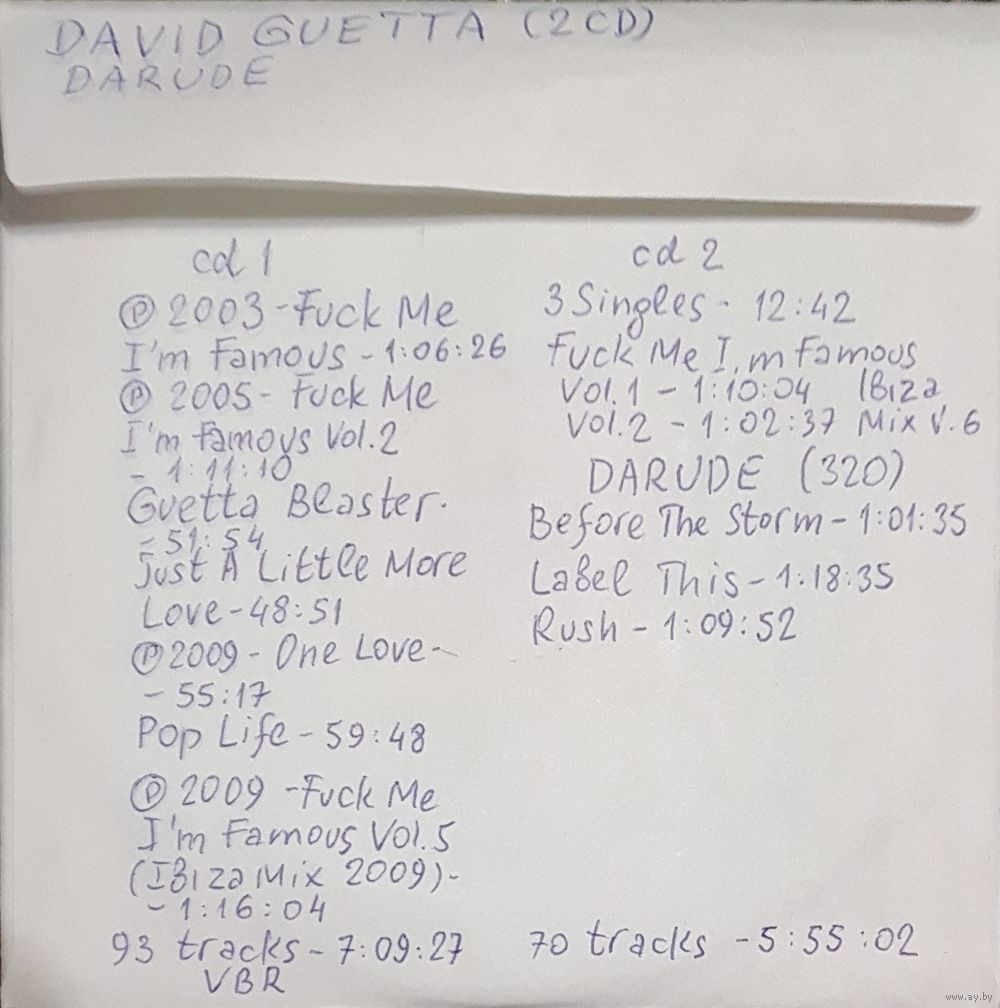 DAVID GUETTA (2CD)
DARUDE
cd 1
Ⓟ 2003 - Fuck Me
I'm Famous - 1:06:26
Ⓟ 2005 - Fuck Me
I'm Famous Vol.2
- 1:11:10
Guetta Blaster.
- 51:54
Just A Little More
Love - 48:51
Ⓟ 2009 - One Love -
- 55:17
Pop Life - 59:48
Ⓟ 2009 - Fuck Me
I'm Famous Vol.5
(IBiza Mix 2009) -
- 1:16:04
93 tracks - 7:09:27
VBR
cd 2
3 Singles - 12:42
Fuck Me I,m Famous
Vol.1 - 1:10:04 IBiza
Vol.2 - 1:02:37 Mix V.6
DARUDE (320)
Before The Storm - 1:01:35
LaBel This - 1:18:35
Rush - 1:09:52
70 tracks - 5:55:02
www.ay.by